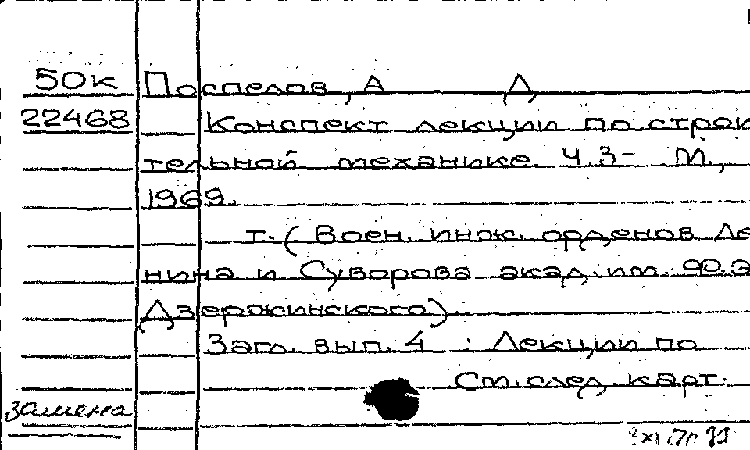 50к Поспелов, А Д
22468 Конспект лекции по строи
тельной механике. Ч.3- М.,
1969.
т. (Воен. инж. орденов Ле
нина и Суворова акад. им. Ф.Э.
Дзержинского).
Загл. вып. 4 : Лекции по
См. след. карт.
замена